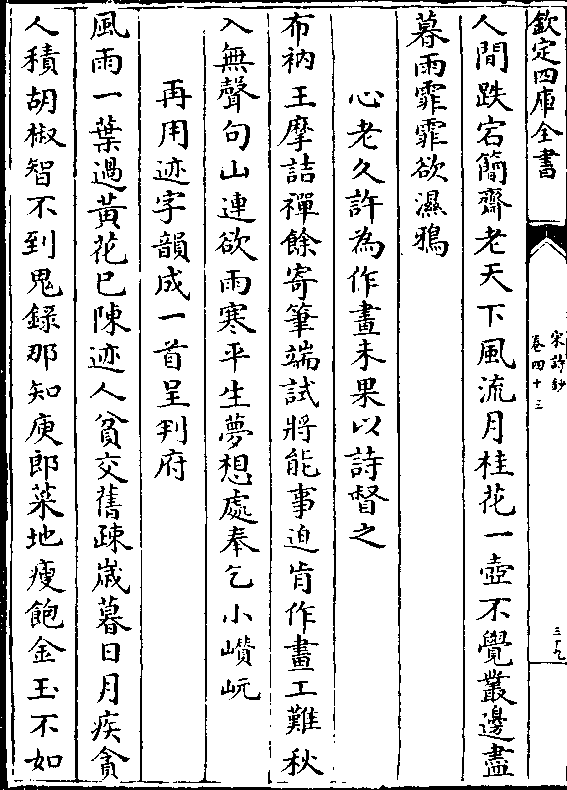 欽定四庫全書
宋詩鈔
卷四十三
三十九
人間跌宕簡齋老天下風流月桂花一壺不覺叢邊盡
暮雨霏霏欲濕鴉
心老久許為作畫未果以詩督之
布衲王摩詰禪餘寄筆端試將能事迫肯作畫工難秋
入無聲句山連欲雨寒平生夢想處奉乞小巑岏
再用迹字韻成一首呈判府
風雨一葉過黃花已陳迹人貧交舊疎嵗暮日月疾貪
人積胡椒智不到鬼錄那知庾郎菜地瘦飽金玉不如